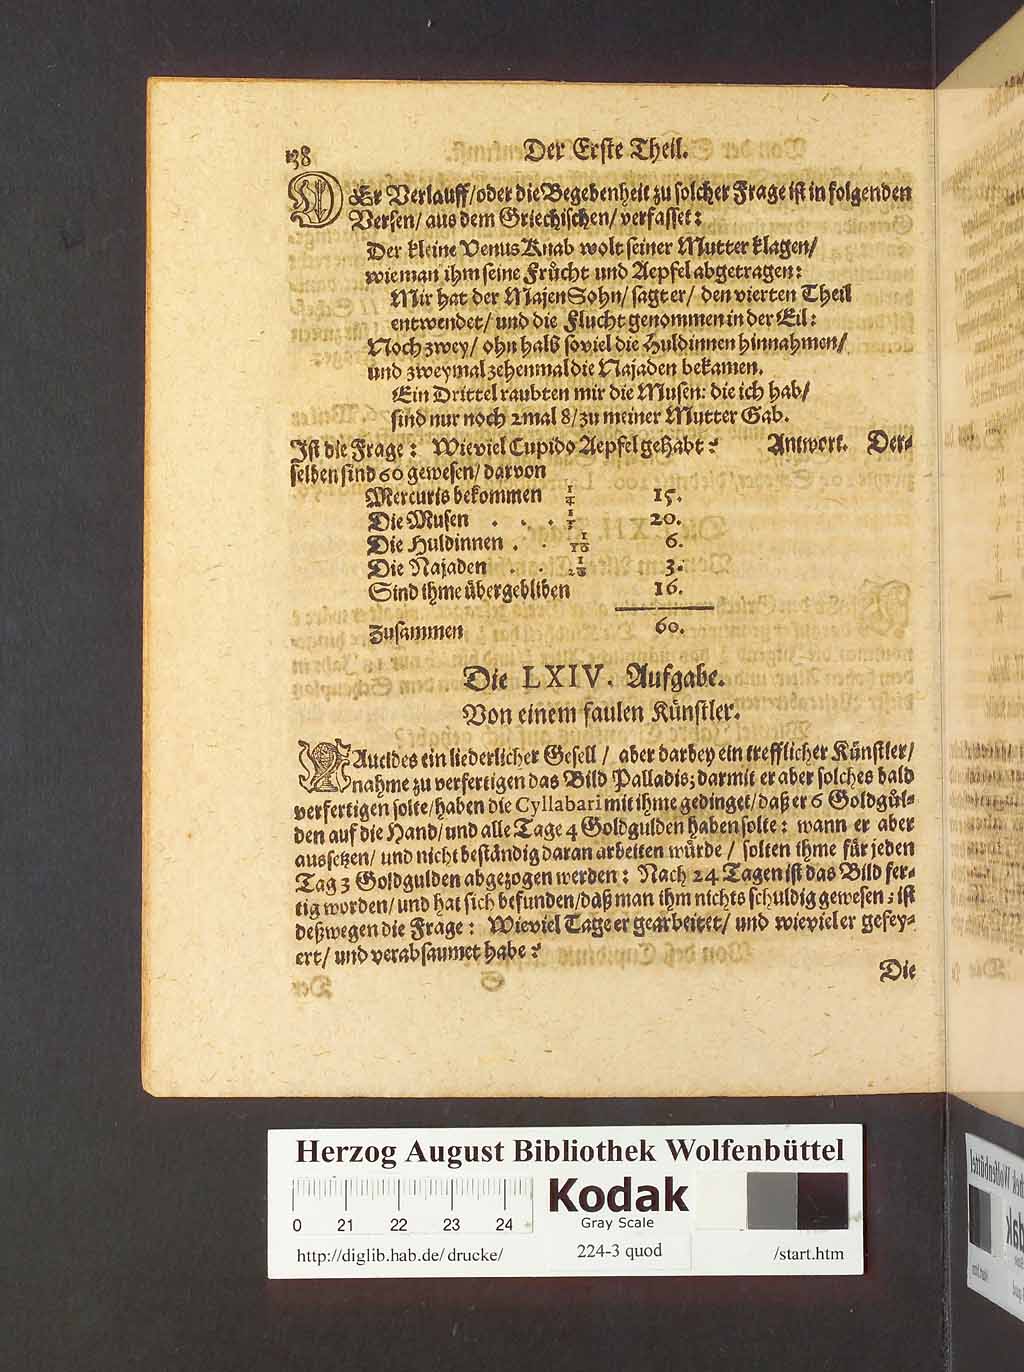 138 Der Erste Theil.
DEr Verlauff/ oder die Begebenheit zu solcher Frage ist in folgenden
Versen/ aus dem Griechischen/ verfasset:
Der kleine Venus Knab wolt seiner Mutter klagen/
wie man ihm seine Frücht und Aepfel abgetragen:
Mir hat der Majen Sohn/ sagt er/ den vierten Theil
entwendet/ und die Flucht genommen in der Eil:
Noch zwey/ ohn halb soviel die Huldinnen hinnahmen/
und zweymal zehenmal die Najaden bekamen.
Ein Drittel raubten mir die Musen: die ich hab/
sind nur noch 2mal 8/ zu meiner Mutter Gab.
Ist die Frage: Wieviel Cupido Aepfel gehabt? Antwort. Der-
selben sind 60 gewesen/ darvon
Mercuris bekommen 1/4 15.
Die Musen . . . 1/3 20.
Die Huldinnen . . 1/10 6.
Die Najaden . . 1/20 3.
Sind ihme übergebliben 16.
Zusammen 60.
Die LXIV. Aufgabe.
Von einem faulen Künstler.
Aucides ein liederlicher Gesell/ aber darbey ein trefflicher Künstler/
nahme zu verfertigen das Bild Palladis; darmit er aber solches bald
verfertigen solte/ haben die Cyllabari mit ihme gedinget/ daß er 6 Goldgül-
den auf die Hand/ und alle Tage 4 Goldgulden haben solte: wann er aber
aussetzen/ und nicht beständig daran arbeiten würde/ solten ihme für jeden
Tag 3 Goldgulden abgezogen werden: Nach 24 Tagen ist das Bild fer-
tig worden/ und hat sich befunden/ daß man ihm nichts schuldig gewesen; ist
deßwegen die Frage: Wieviel Tage er gearbeitet/ und wieviel er gefey-
ert/ und verabsaumet habe?
Die
Herzog August Bibliothek Wolfenbüttel
0 21 22 23 24
Kodak
Gray Scale
http://diglib.hab.de/drucke/ 224-3 quod /start.htm